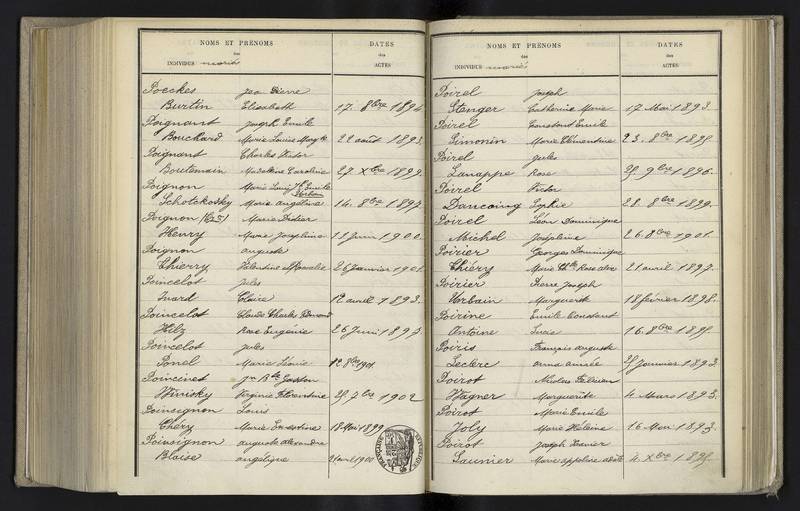 NOMS ET PRÉNOMS DATES
des des
INDIVIDUS mariés ACTES
Poeckes Jean Pierre
Burtin Elisabeth 17. 8bre 1894
Poignant Joseph Emile
Bouchard Marie Louise Margte 22 août 1893.
Poignant Charles Victor
Boulemain Madeleine Caroline 27. Xbre 1899.
Poignon Marie Louis
Schotokosky Marie Angéline 14. 8bre 1897.
Poignon Marie Didier
Henry Marie Joséphine 11 Juin 1900.
Poignon Auguste
Thierry Valentine Rosalie 26 Janvier 1901.
Poincelot Jules
Inard Claire 12 avril 1893.
Poincelot Claude Charles Edmond
Hilz Rose Eugénie 26 Juin 1897.
Poincelot Jules
Ponel Marie Léonie 12. 8bre 1901.
Poincenet Jn Bte Gaston
Winisky Virginie Florentine 25. 7bre 1902
Poinsignon Louis
Chéry Marie Ernestine 18 Mai 1899
Poinsignon Auguste Alexandre
Blaise Angélique avril 1900
NOMS ET PRÉNOMS DATES
des des
INDIVIDUS mariés ACTES
Poirel Joseph
Stenger Catherine Marie 17 Mai 1893.
Poirel Constant Emile
Simonin Marie Clémentine 23. 8bre
Poirel Jules
Lanappe Rose 9bre 1896.
Poirel Victor
Dancoing Sophie 28. 8bre 1899.
Poirel Léon Dominique
Michel Joséphine 26. 8bre 1901.
Poirier Georges Dominique
Thiéry Marie Rose 21 avril 1897.
Poirier Pierre Joseph
Vorbain Marguerite 18 février 1898.
Poirine Emile Constant
Antoine Lucie 16. 8bre
Poiris François Auguste
Leclerc Anna Aimée 25 Janvier 1893.
Poirot Nicolas
Wagner Marguerite 4 Mars 1893.
Poirot Marie Emile
Joly Marie Hélène 16 Mai 1893.
Poirot Joseph Xavier
Saunier Marie Appoline 4. Xbre